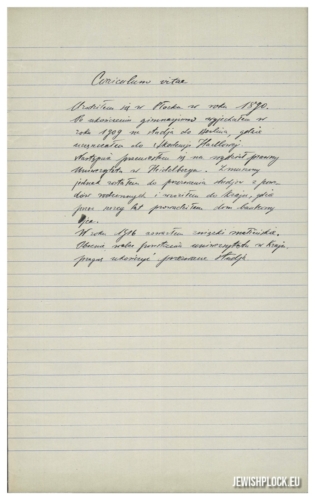 Curiculum vitae
Urodziłem się w Płocku w roku 1890.
Po ukończeniu gimnazjum wyjechałem w
roku 1909 na studja do Berlina, gdzie
uczęszczałem do Akademji Handlowej
następnie przeniosłem się na wydział prawny
Uniwersytetu w Heidelbergu. Zmuszony
jednak zostałem do przerwania studjów z powo-
dów rodzinnych i wróciłem do kraju, gdzie
przez szereg lat prowadziłem dom bankowy
ojca.
W roku 1916 zawarłem związki małżeńskie.
Obecnie wobec powstania uniwersytetu w kraju
pragnę ukończyć przerwane studja
JEWISHPLOCK.EU